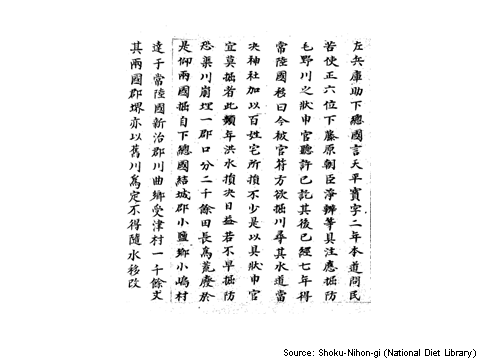 左兵庫助下總國言天平寶字二年本道問民
苦使正六位下藤原朝臣淨辨等具注應掘防
毛野川之狀申官聽許已訖其後已經七年得
常陸國移曰今被官符方欲掘川尋其水道當
决神社加以百姓宅所損不少是以具狀申官
宜莫掘者此頻年洪水損决日益若不早掘防
恐渠川崩埋一郡口分二千餘田長爲荒廢於
是仰兩國掘自下總國結城郡小鹽鄕小嶋村
達于常陸國新治郡川曲鄕受津村一千餘丈
其兩國郡堺亦以舊川爲定不得隨水移改
Source: Shoku-Nihon-gi (National Diet Library)